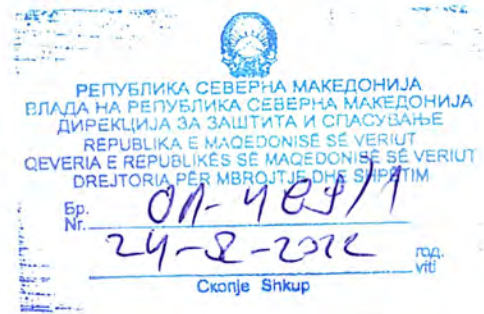 РЕПУБЛИКА СЕВЕРНА МАКЕДОНИЈА
ВЛАДА НА РЕПУБЛИКА СЕВЕРНА МАКЕДОНИЈА
ДИРЕКЦИЈА ЗА ЗАШТИТА И СПАСУВАЊЕ
REPUBLIKA E MAQEDONISË SË VERIUT
QEVERIA E REPUBLIKËS SË MAQEDONISË SË VERIUT
DREJTORIA PËR MBROJTJE DHE SHPËTIM
Бр.
Nr.
год.
viti
Скопје Shkup